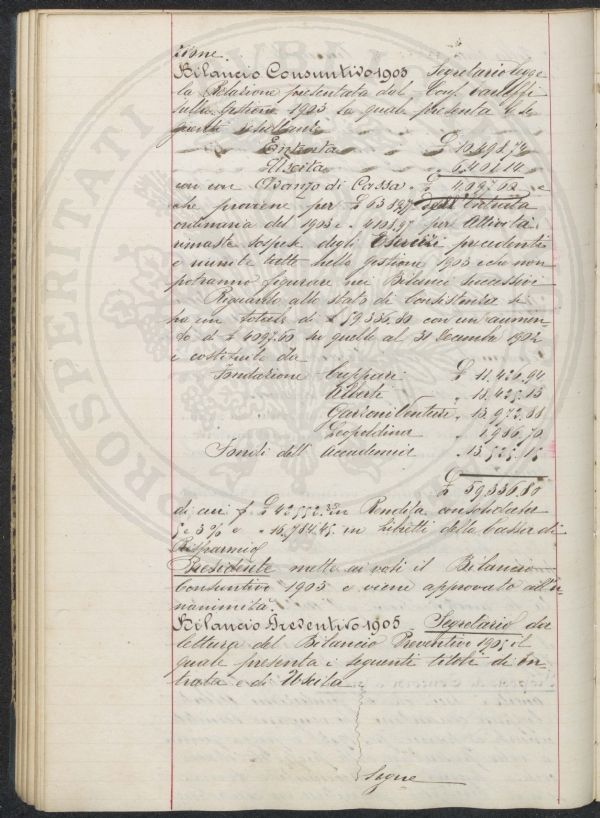 zione.
Bilancio Consuntivo 1903 Segretario legge
la Relazione presentata dal Cons.
sulla gestione 1903 la quale presenta i se
guenti resultati
Entrata £ 10.498,72
Uscita 6.401.14
con un Avanzo di Cassa £ 4.097.62
che proviene per £ dell'Entrata
ordinaria del 1903 e 4108,97 per Attività
rimaste sospese degli Esercizi precedenti
e riunite tutte nella gestione 1903 e che non
potranno figurare nei Bilanci successivi
Riguardo allo stato di Consistenza si
ha un totale di £ 59.336.80 con un aumen
to di £ 4097.60 su quello al 31 Decembre 1902
e costituito da
Fondazione Cuppari £ 11,426.94
Alberti " 18,425.13
Garzoni Venturi " 13,972.88
Leopoldina " 1,986,70
Fondi dell'Accademia " 13.525.15
£ 59,336,80
di cui £ 42,552.35 in Rendita consolidata
5 e 3% e " 16,784.45 in Libretti della Cassa di
Risparmio
Presidente mette ai voti il Bilancio
Consuntivo 1903 e viene approvato all'u
nanimità.
Bilancio Preventivo 1905 Segretario da
lettura del Bilancio Preventivo 1905 il
quale presenta i seguenti titoli di En
trata e di Uscita
Segue
PROSPERITATI